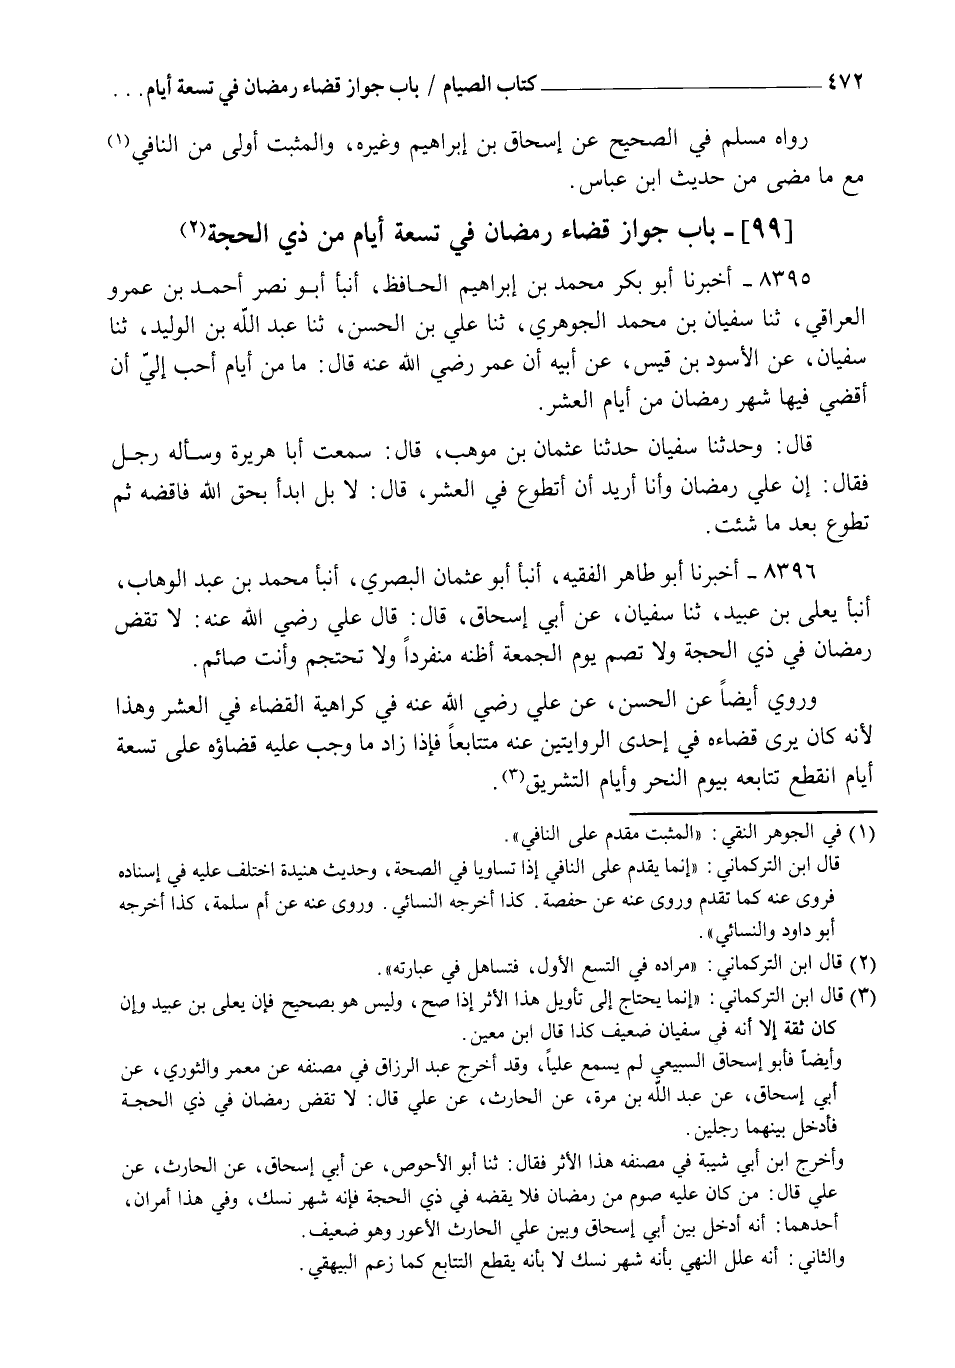 ٤٧٢ ــــــــــــــــ كتاب الصيام / باب جواز قضاء رمضان في تسعة أيام . . .
رواه مسلم في الصحيح عن إسحاق بن إبراهيم وغيره، والمثبت أولى من النافي(١)
مع ما مضى من حديث ابن عباس.
[٩٩] - باب جواز قضاء رمضان في تسعة أيام من ذي الحجة(٢)
٨٣٩٥ - أخبرنا أبو بكر محمد بن إبراهيم الحافظ، أنبأ أبو نصر أحمد بن عمرو
العراقي، ثنا سفيان بن محمد الجوهري، ثنا علي بن الحسن، ثنا عبد الله بن الوليد، ثنا
سفيان، عن الأسود بن قيس، عن أبيه أن عمر رضي الله عنه قال: ما من أيام أحب إليّ أن
أقضي فيها شهر رمضان من أيام العشر.
قال: وحدثنا سفيان حدثنا عثمان بن موهب، قال: سمعت أبا هريرة وسأله رجل
فقال: إن علي رمضان وأنا أريد أن أتطوع في العشر، قال: لا بل ابدأ بحق الله فاقضه ثم
تطوع بعد ما شئت.
٨٣٩٦ - أخبرنا أبو طاهر الفقيه، أنبأ أبو عثمان البصري، أنبأ محمد بن عبد الوهاب،
أنبأ يعلى بن عبيد، ثنا سفيان، عن أبي إسحاق، قال: قال علي رضي الله عنه: لا تقض
رمضان في ذي الحجة ولا تصم يوم الجمعة أظنه منفرداً ولا تحتجم وأنت صائم.
وروي أيضاً عن الحسن، عن علي رضي الله عنه في كراهية القضاء في العشر وهذا
لأنه كان يرى قضاءه في إحدى الروايتين عنه متتابعاً فإذا زاد ما وجب عليه قضاؤه على تسعة
أيام انقطع تتابعه بيوم النحر وأيام التشريق(٣).
(١) في الجوهر النقي: «المثبت مقدم على النافي».
قال ابن التركماني: «إنما يقدم على النافي إذا تساويا في الصحة، وحديث هنيدة اختلف عليه في إسناده
فروى عنه كما تقدم وروى عنه عن حفصة. كذا أخرجه النسائي. وروى عنه عن أم سلمة، كذا أخرجه
أبو داود والنسائي».
(٢) قال ابن التركماني: «مراده في التسع الأول، فتساهل في عبارته».
(٣) قال ابن التركماني: «إنما يحتاج إلى تأويل هذا الأثر إذا صح، وليس هو بصحيح فإن يعلى بن عبيد وإن
كان ثقة إلا أنه في سفيان ضعيف كذا قال ابن معين.
وأيضاً فأبو إسحاق السبيعي لم يسمع علياً، وقد أخرج عبد الرزاق في مصنفه عن معمر والثوري، عن
أبي إسحاق، عن عبد الله بن مرة، عن الحارث، عن علي قال: لا تقض رمضان في ذي الحجة
فأدخل بينهما رجلين.
وأخرج ابن أبي شيبة في مصنفه هذا الأثر فقال: ثنا أبو الأحوص، عن أبي إسحاق، عن الحارث، عن
علي قال: من كان عليه صوم من رمضان فلا يقضه في ذي الحجة فإنه شهر نسك، وفي هذا أمران،
أحدهما: أنه أدخل بين أبي إسحاق وبين علي الحارث الأعور وهو ضعيف.
والثاني: أنه علل النهي بأنه شهر نسك لا بأنه يقطع التتابع كما زعم البيهقي.